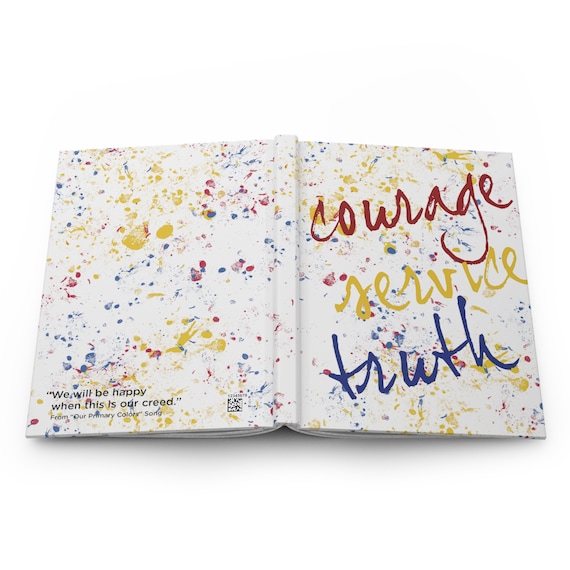 courage
service
truth
"We will be happy
when this is our creed."
From "Our Primary Colors" Song